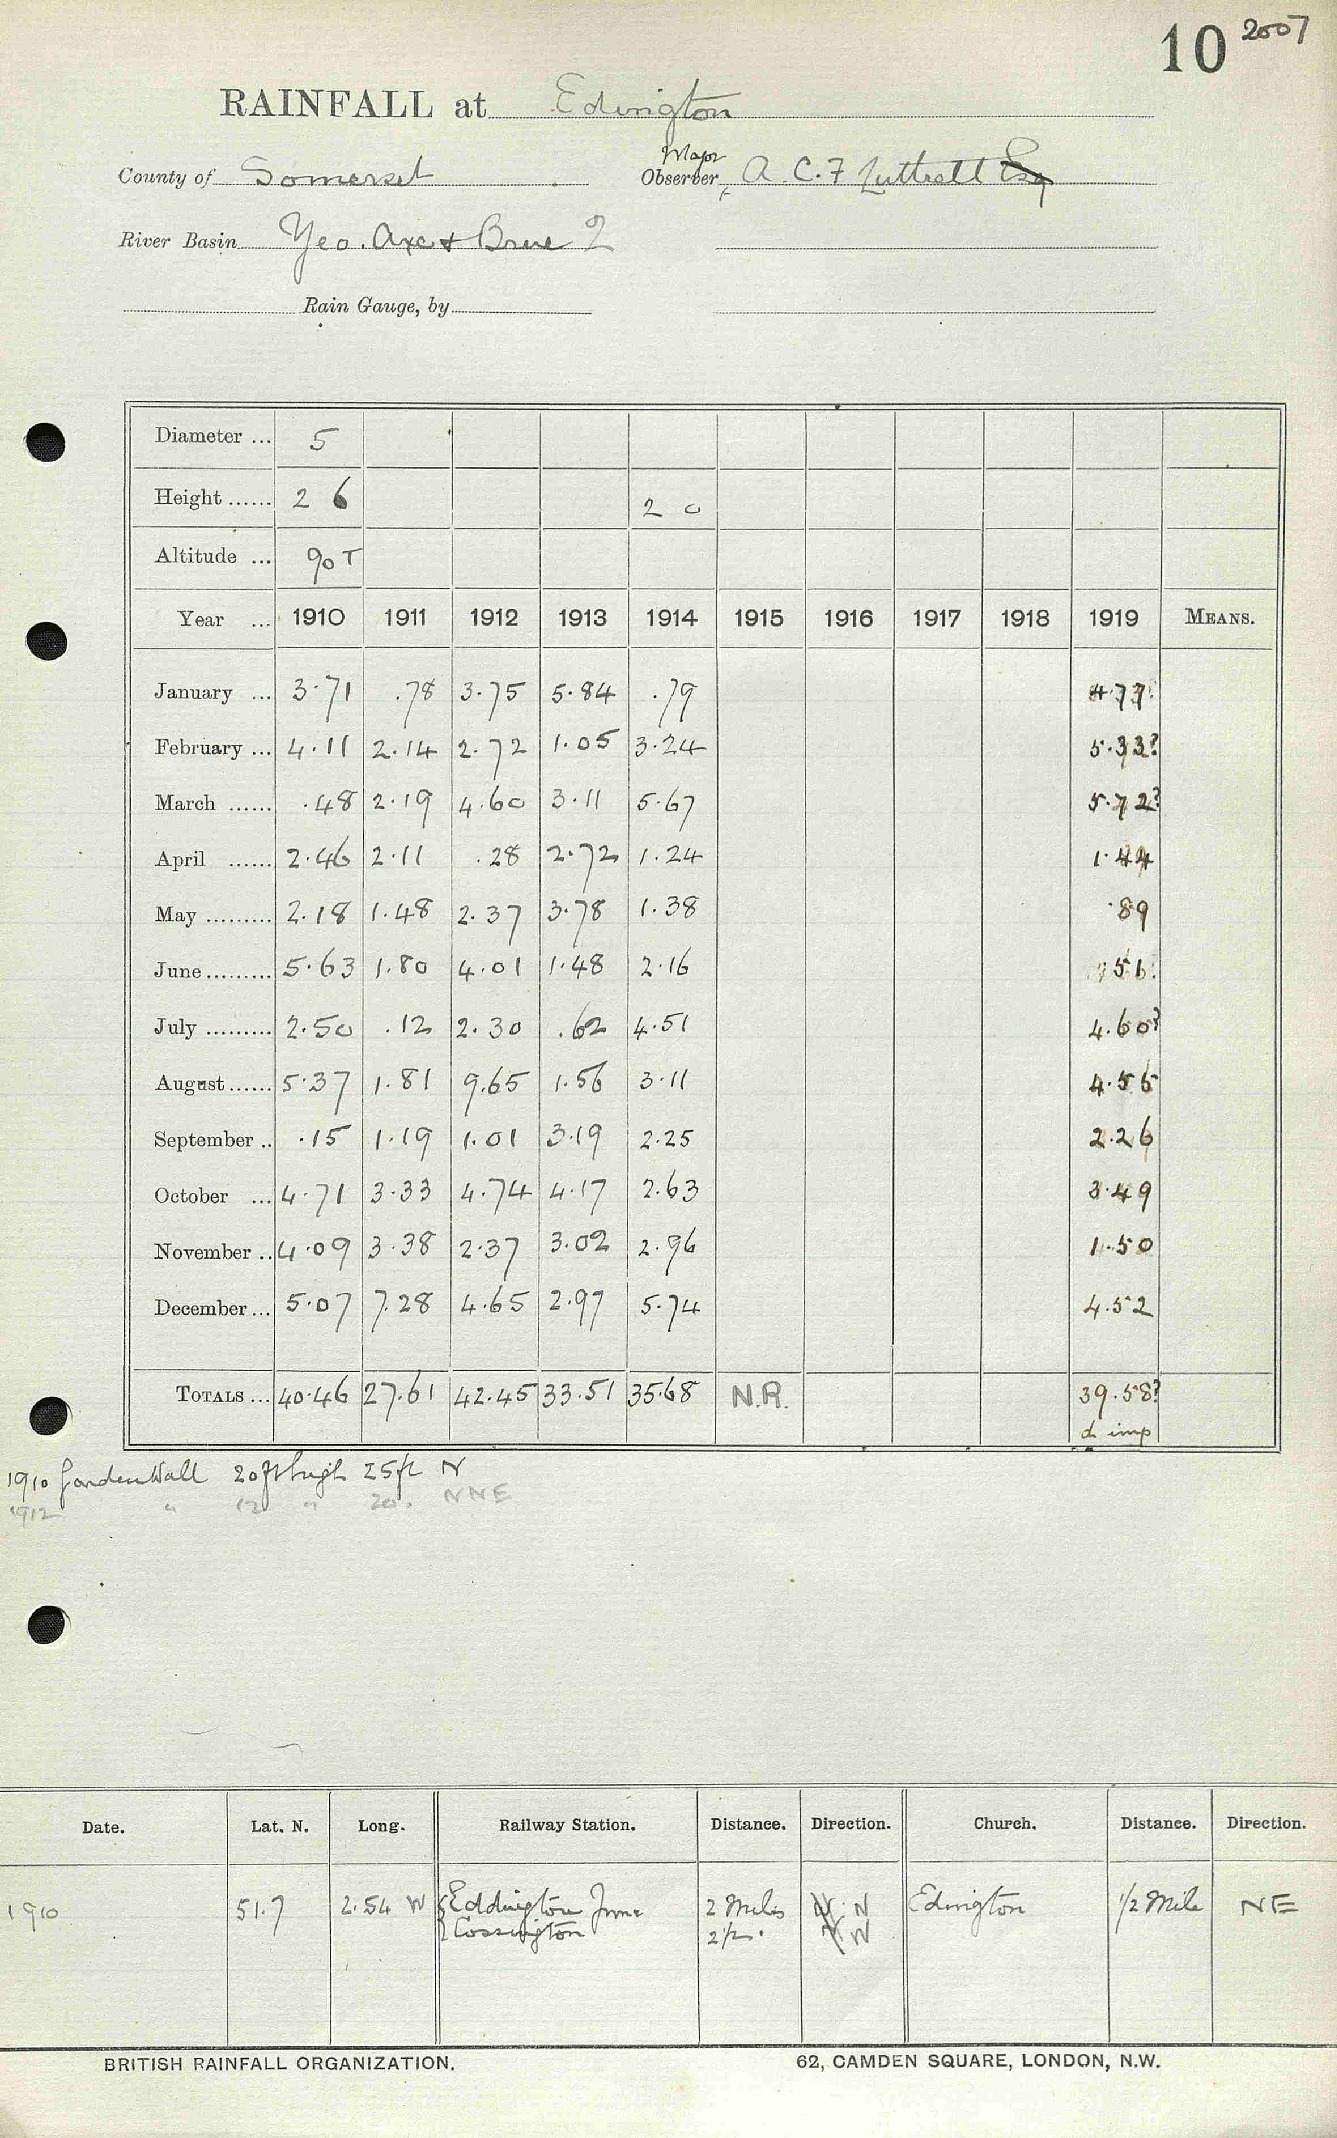 10 2007
RAINFALL at Edington
County of Somerset Major Observer, A. C. F Luttrell Esq
River Basin Yeo. Axe & Brue 2
Rain Gauge, by
Diameter ... 5
Height ...... 2 6 2 0
Altitude ... 90 T
Year ... 1910 1911 1912 1913 1914 1915 1916 1917 1918 1919 MEANS.
January ... 3.71 .78 3.75 5.84 .79
February ... 4.11 2.14 2.72 1.05 3.24 5.33?
March ...... .48 2.19 4.60 3.11 5.67 5.72?
April ...... 2.46 2.11 .28 2.72 1.24 1.44
May ......... 2.18 1.48 2.37 3.78 1.38 .89
June......... 5.63 1.80 4.01 1.48 2.16
July ......... 2.50 .12 2.30 .62 4.51 4.60?
August...... 5.37 1.81 9.65 1.56 3.11 4.56
September .. .15 1.19 1.01 3.19 2.25 2.26
October ... 4.71 3.33 4.74 4.17 2.63 3.49
November .. 4.09 3.38 2.37 3.02 2.96 1.50
December... 5.07 7.28 4.65 2.97 5.74 4.52
TOTALS ... 40.46 27.61 42.45 33.51 35.68 N.R. 39.58?
d imp
1910 Garden Wall 20ft high 25ft N
1912 " 12 " 20. NNE
Date. Lat. N. Long. Railway Station. Distance. Direction. Church. Distance. Direction.
1910 51.7 2.54 W Eddington Junc 2 Miles N Edington 1/2 Mile NE
Cossington 2 1/2 . W
BRITISH RAINFALL ORGANIZATION. 62, CAMDEN SQUARE, LONDON, N.W.